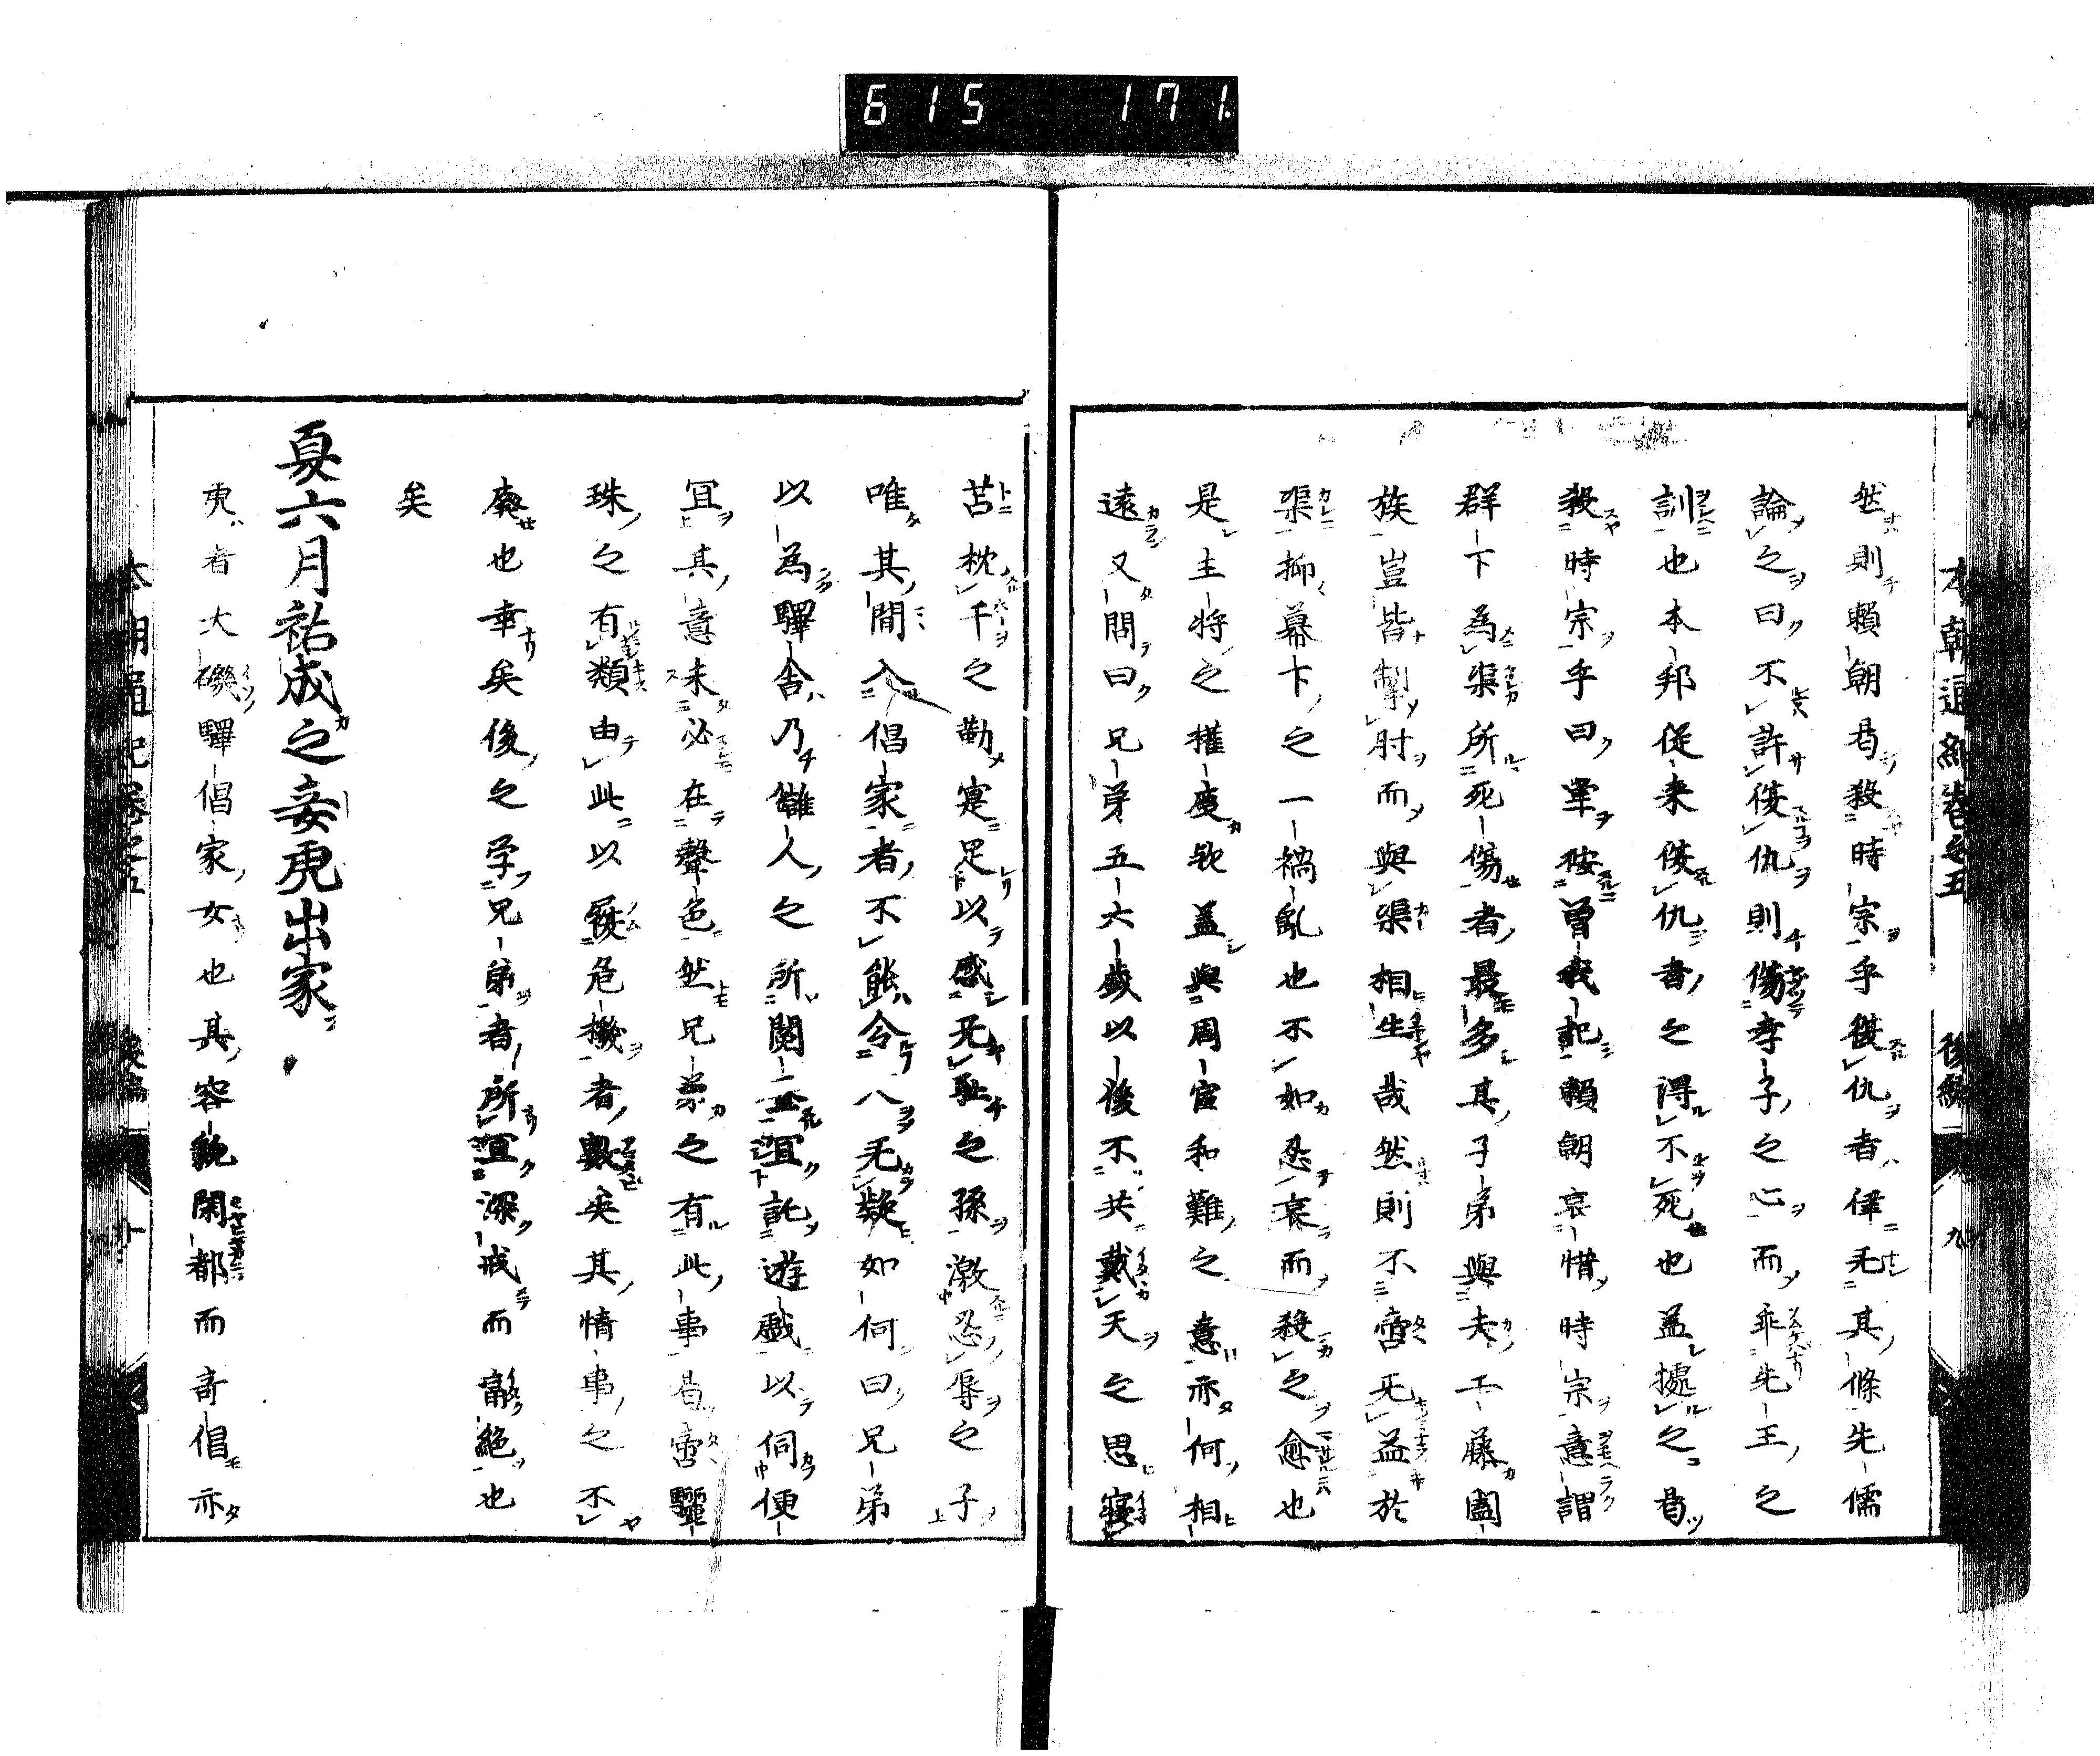 615 171
本朝通紀卷之五 後編 九
然則賴朝曷殺時宗乎復仇者律无其條先儒
論之曰不許復仇則傷孝子之心而乖先王之
訓也本邦從来復仇者之得不死也盖據之曷
殺時宗乎曰畢按曽我記賴朝哀惜時宗意謂
群下為渠所死傷者最多其子弟與夫工藤闔
族豈皆掣肘而與渠相生哉然則不啻无益於
渠抑幕下之一禍乱也不如忍哀而殺之愈也
是主将之權度欤盖與周官和難之意亦何相
遠又問曰兄弟五六歳以後不共戴天之思寝
苫枕干之勤寔足以感无耻之孫激忍辱之子
唯其間入倡家者不能令人无疑如何曰兄弟
以為驛舎乃讎人之所閱宜託遊戯以伺便
冝其意未必在聲色然兄弟之有此事曷啻驪
珠之有類由此以履危機者數矣其情事之不
廃也幸矣後之学兄弟者所宜深戒而絶也
矣
夏六月祐成之妾虎出家
虎者大磯驛倡家女也其容貌閑都而奇倡亦
本朝通紀卷之五 後編 十